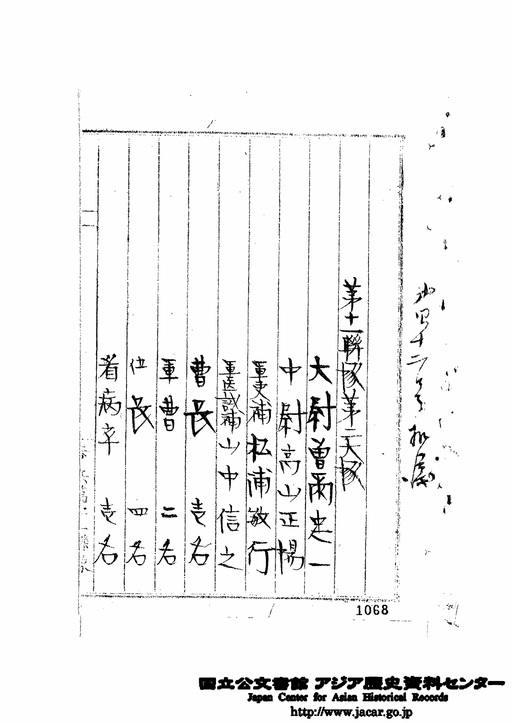 第十一聯隊第二大隊
大尉曽爾忠一
中尉高山正暢
軍吏補松浦敏行
軍医試補山中信之
曹長 壱名
軍曹 二名
伍長 四名
看病卒 壱名
1068
国立公文書館 アジア歴史資料センター
Japan Center for Asian Historical Records
http://www.jacar.go.jp